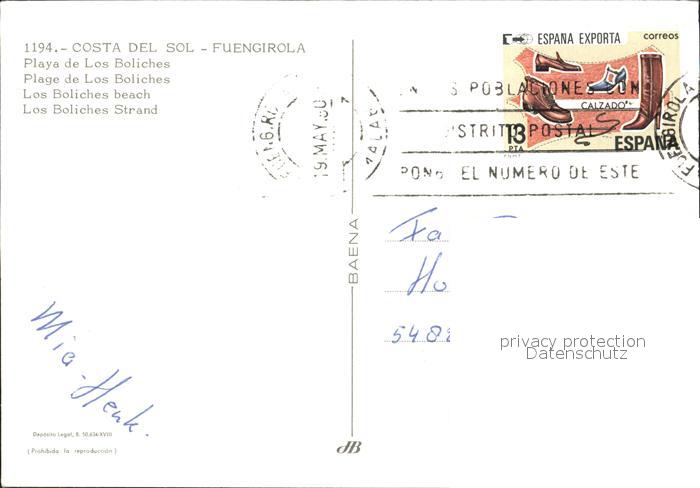 1194.- COSTA DEL SOL - FUENGIROLA
Playa de Los Boliches
Plage de Los Boliches
Los Boliches beach
Los Boliches Strand
ESPAÑA EXPORTA
correos
CALZADO
13
PTA
ESPAÑA
POBLACIONES CON
POSTAL
EL NUMERO DE ESTE
19.MAY.80
BAENA
Fa
Ho
548
privacy protection
Datenschutz
Mia-Henk.
Depósito Legal, B. 50.634-XVIII
(Prohibida la reproducción)